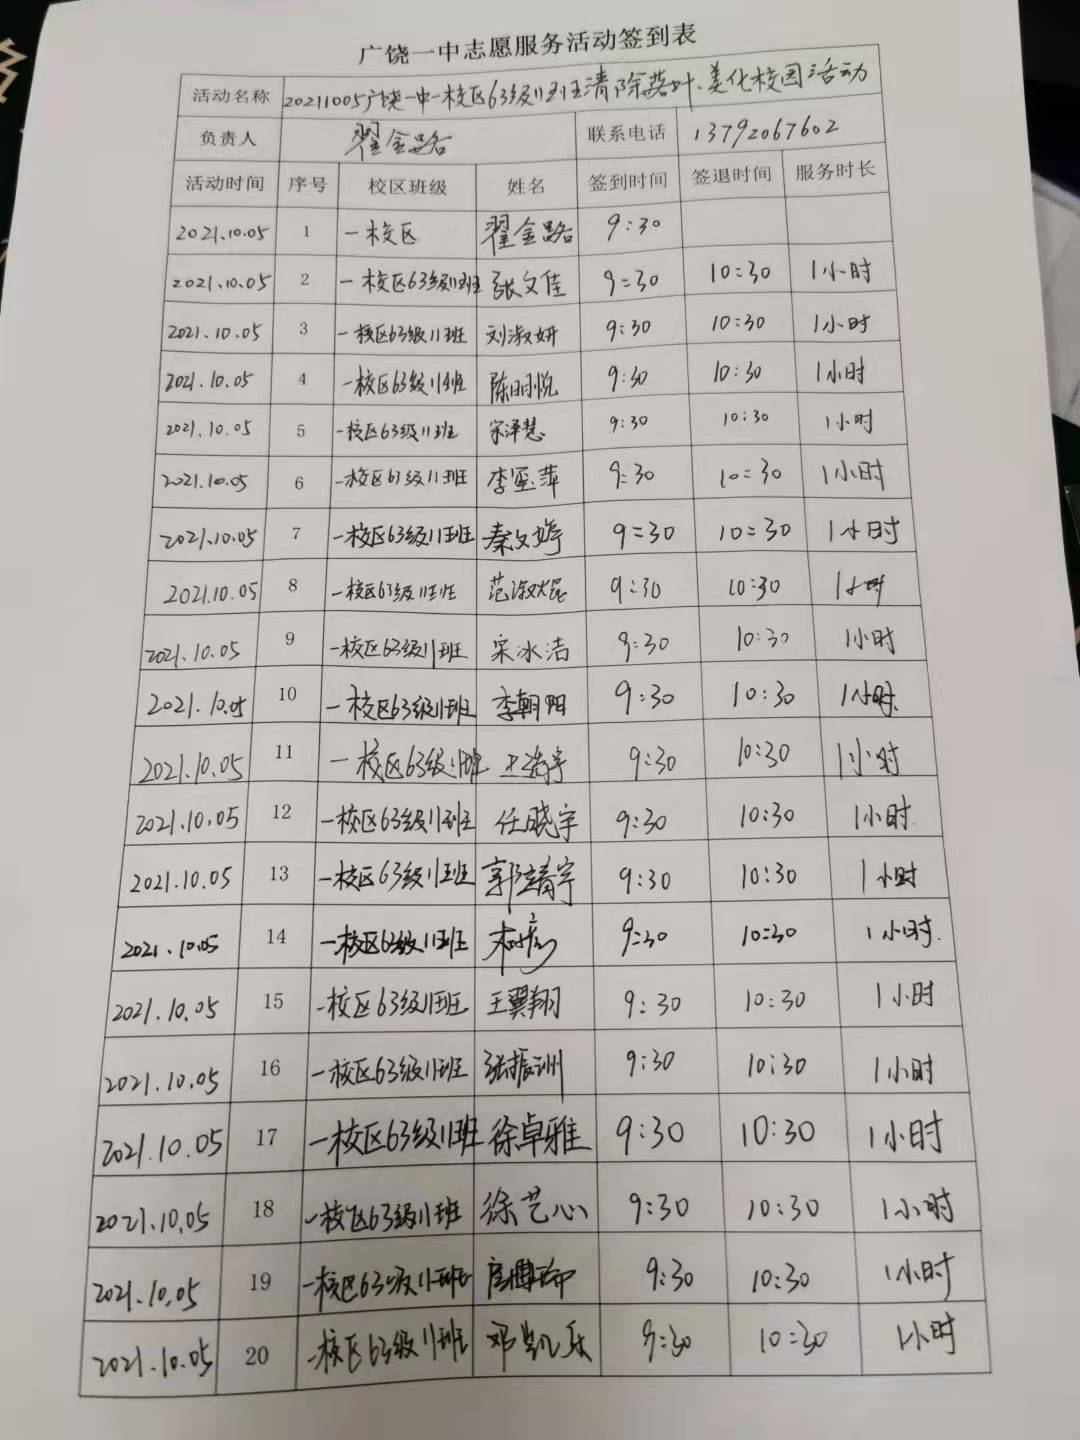 广饶一中志愿服务活动签到表
活动名称 20211005广饶一中一校区63级11班清除落叶、美化校园活动
负责人 翟金路 联系电话 13792067602
活动时间 序号 校区班级 姓名 签到时间 签退时间 服务时长
2021.10.05 1 一校区 翟金路 9:30
2021.10.05 2 一校区63级11班 张文佳 9:30 10:30 1小时
2021.10.05 3 一校区63级11班 刘淑妍 9:30 10:30 1小时
2021.10.05 4 一校区63级11班 陈明悦 9:30 10:30 1小时
2021.10.05 5 一校区63级11班 宋泽慧 9:30 10:30 1小时
2021.10.05 6 一校区63级11班 李 萍 9:30 10:30 1小时
2021.10.05 7 一校区63级11班 秦文婷 9:30 10:30 1小时
2021.10.05 8 一校区63级11班 9:30 10:30 1小时
2021.10.05 9 一校区63级11班 宋冰洁 9:30 10:30 1小时
2021.10.05 10 一校区63级11班 李朝阳 9:30 10:30 1小时
2021.10.05 11 一校区63级11班 9:30 10:30 1小时
2021.10.05 12 一校区63级11班 任晓宇 9:30 10:30 1小时
2021.10.05 13 一校区63级11班 郭靖宇 9:30 10:30 1小时
2021.10.05 14 一校区63级11班 9:30 10:30 1小时
2021.10.05 15 一校区63级11班 王翼翔 9:30 10:30 1小时
2021.10.05 16 一校区63级11班 张振洲 9:30 10:30 1小时
2021.10.05 17 一校区63级11班 徐卓雅 9:30 10:30 1小时
2021.10.05 18 一校区63级11班 徐艺心 9:30 10:30 1小时
2021.10.05 19 一校区63级11班 9:30 10:30 1小时
2021.10.05 20 一校区63级11班 邓凯乐 9:30 10:30 1小时